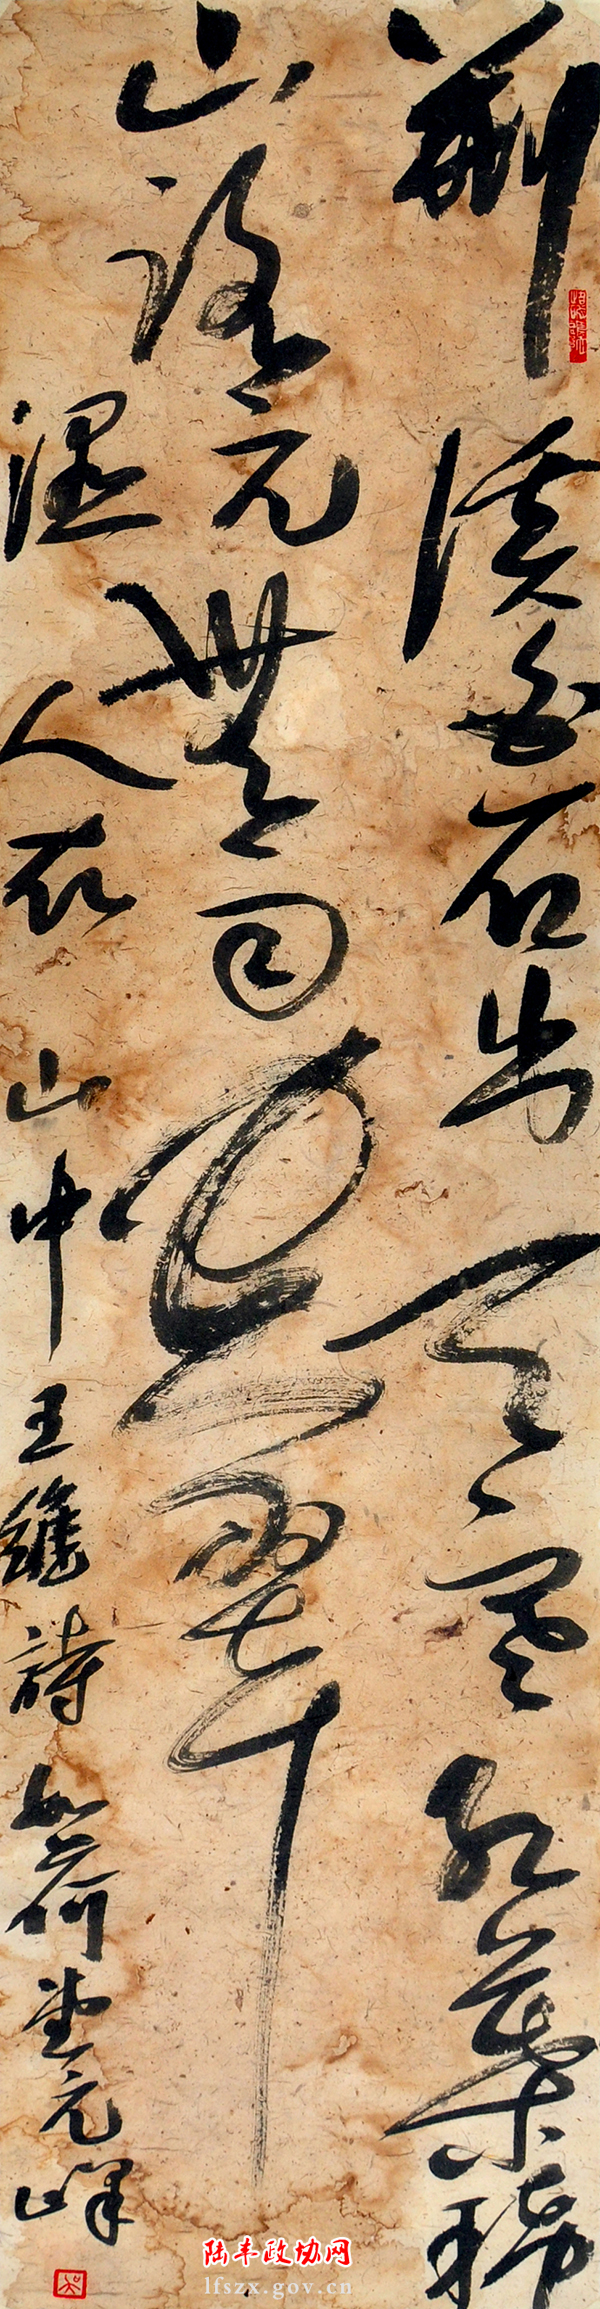 荆溪白石出天寒红葉稀
山路元無雨空翠
湿人衣 山中 王維詩 如荷堂元峰
陆丰政协网
lfszx.gov.cn